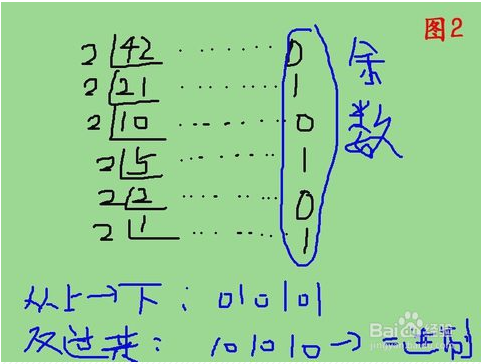 图2
2 42 ...... 0
2 21 ...... 1
2 10 ...... 0
2 5 ...... 1
2 2 ...... 0
2 1 ...... 1
余数
从上→下: 010101
反过来: 101010→二进制
Baidu经验